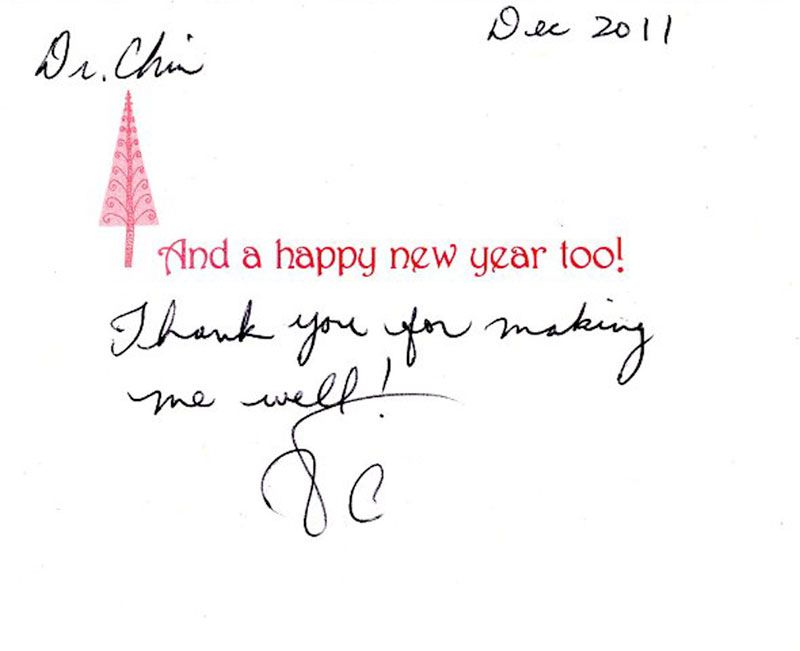 Dec 2011
Dr. Chin
And a happy new year too!
Thank you for making
me well!